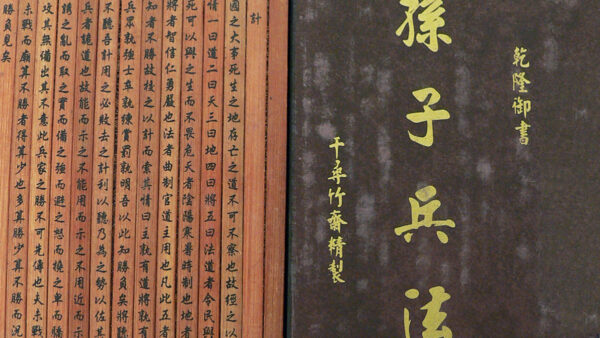 乾隆御書
孫子兵法
千乘竹齋精製
計
國之大事死生之地存亡之道不可不察也故經之以
情一曰道二曰天三曰地四曰將五曰法道者令民與
死可以與之生而不畏危天者陰陽寒暑時制也地者
將者智信仁勇嚴也法者曲制官道主用也凡此五者
知者不勝故校之以計而索其情曰主孰有道將孰有
兵眾孰強士卒孰練賞罰孰明吾以此知勝負矣將聽
不聽吾計用之必敗去之計利以聽乃為之勢以佐其
兵者詭道也故能而示之不能用而示之不用近而示
誘之亂而取之實而備之強而避之怒而撓之卑而驕
攻其無備出其不意此兵家之勝不可先傳也夫未戰
未戰而廟算不勝者得算少也多算勝少算不勝而況
勝負見矣